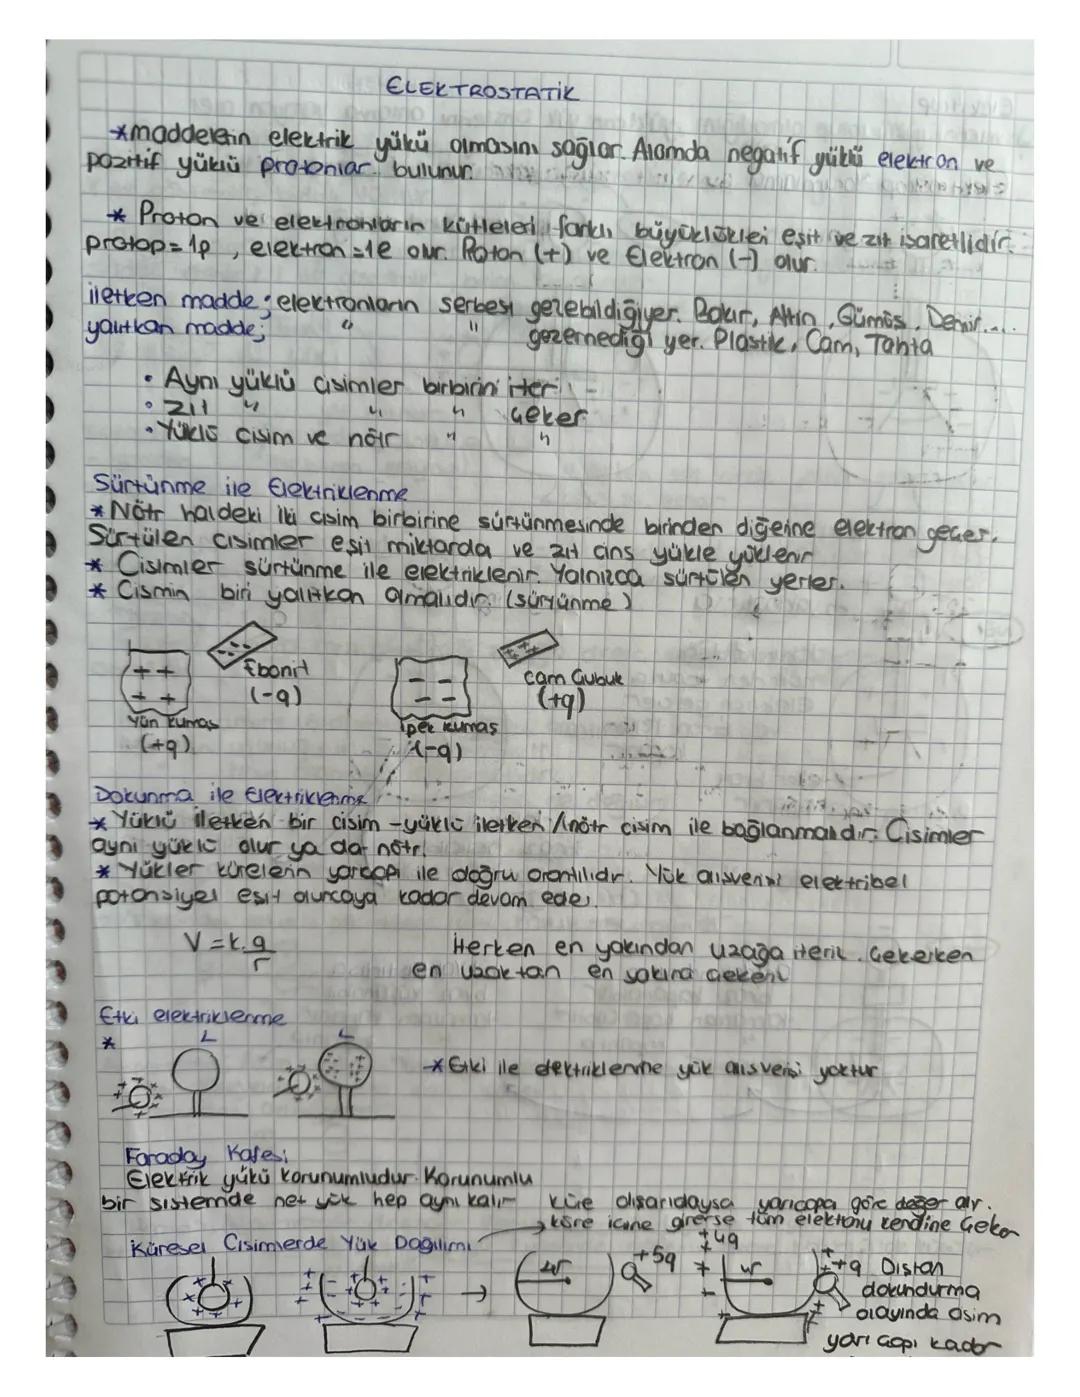 ELEKTROSTATİK
*maddelerin elektrik yükü olmasını sağlar. Atomda negatif yüklü elektron ve
pozitif yüklü protonlar bulunur.
* Proton ve elektronların kütleleri farklı büyüklükleri eşit ve zıt işaretlidir.
proton=1p , elektron=1e olur. Proton (+) ve Elektron (-) olur.
iletken madde; elektronların serbest gezebildiği yer. Bakır, Altın, Gümüş, Demir....
yalıtkan madde; " " gezemediği yer. Plastik, Cam, Tahta
• Aynı yüklü cisimler birbirini iter
• Zıt " " " çeker
• Yüklü cisim ve nötr " "
Sürtünme ile Elektriklenme
* Nötr haldeki iki cisim birbirine sürtünmesinde birinden diğerine elektron geçer.
Sürtülen cisimler eşit miktarda ve zıt cins yükle yüklenir
* Cisimler sürtünme ile elektriklenir. Yalnızca sürtülen yerler.
* Cismin biri yalıtkan olmalıdır. (sürtünme)
++
++
Yün kumaş
(+q)
Ebonit
(-q)
İpek kumaş
(-q)
Cam Çubuk
(+q)
Dokunma ile Elektriklenme
* Yüklü iletken bir cisim -yüklü iletken/nötr cisim ile bağlanmalıdır. Cisimler
aynı yüklü olur ya da nötr.
* Yükler kürelerin yarıçapı ile doğru orantılıdır. Yük alışverişi elektriksel
potansiyel eşit oluncaya kadar devam eder.
V=k.q
r
İterken en yakından uzağa iterir. Çekerken
en uzaktan en yakına çekerir
Etki elektriklenme
*
L
L
* Etki ile elektriklenme yük alışverişi yoktur
Faraday Kafesi
Elektrik yükü korunumludur. Korunumlu
bir sistemde net yük hep aynı kalır
küre dışarıdaysa yarıçapa göre değer alır.
küre içine girerse tüm elektronu kendine çeker
Küresel Cisimlerde Yük Dağılımı
+5q
+4q
+q
Dıştan
dokundurma
olayında cisim
yarı çapı kadar